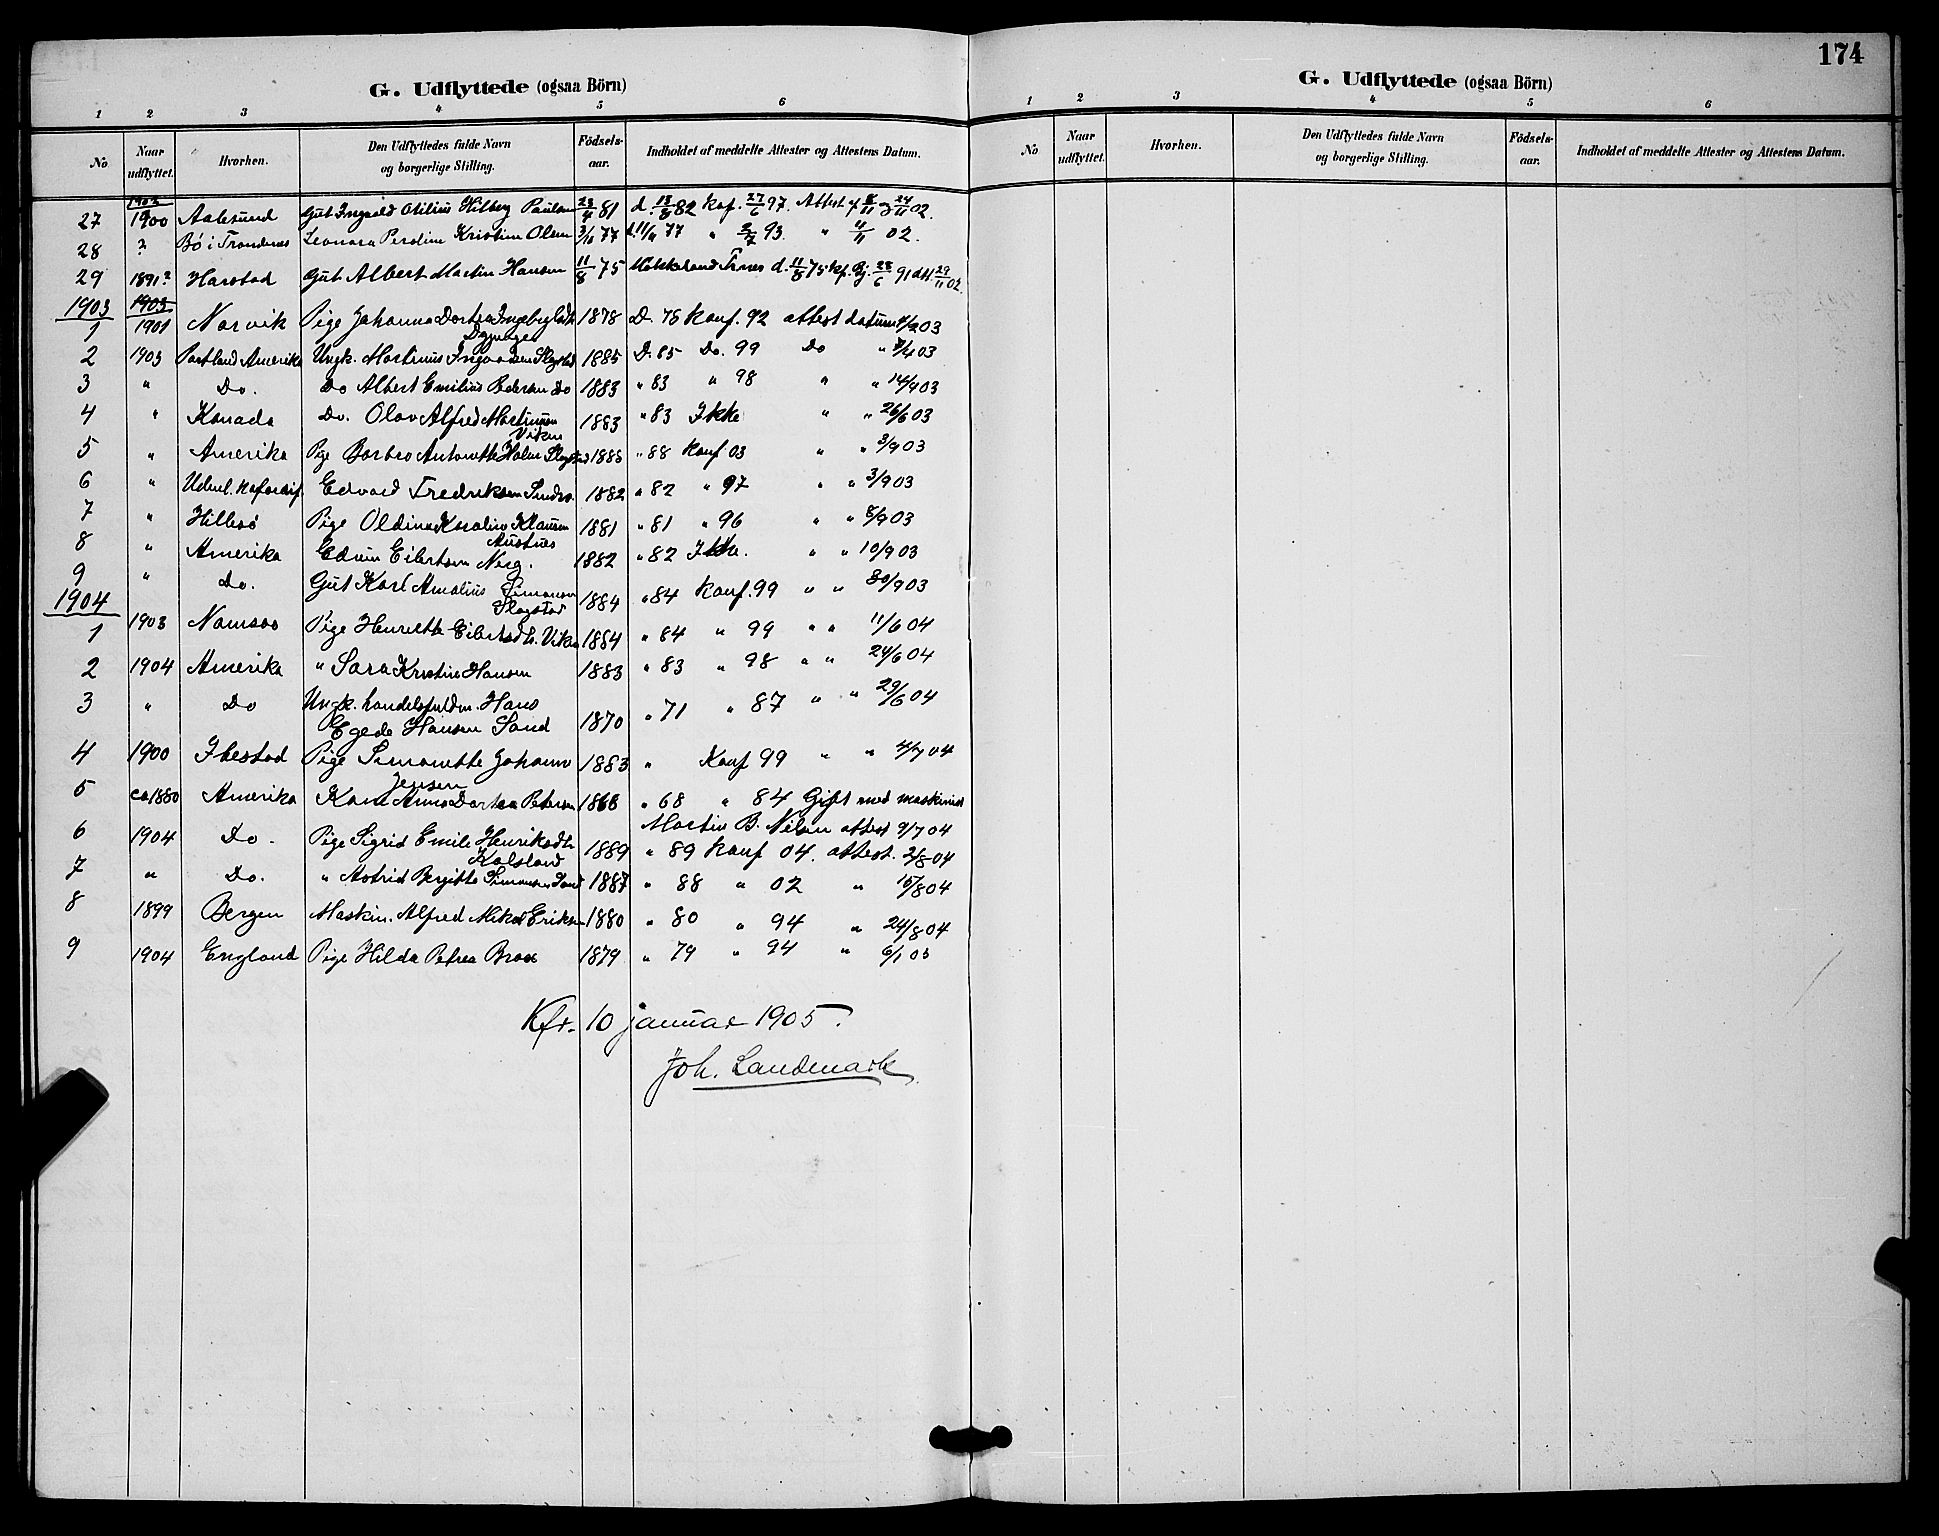 174
G. Udflyttede (ogsaa Börn)
1 2 3 4 5 6
No Naar udflyttet. Hvorhen. Den Udflyttedes fulde Navn og borgerlige Stilling. Födsels-aar. Indholdet af meddelte Attester og Attestens Datum.
1902
27 1900 Aalesund Gut Ingvald Otilius Hilberg Paulsen 23/4 81 d. 13/8 82 kof. 27/6 97. Attest 8/11 24/11 02.
28 ? Bø i Trondenes Leonora Perdine Kristine Olsen 3/10 77 d. 11/11 77 " 2/7 93. " 4/11 02.
29 1891? Harstad Gut Albert Martin Hansen 11/8 75 d. 11/8 75 kf. 28/6 91 att 29/11 02.
1903 1903
1 1901 Narvik Pige Johanna Dortea Ingebrigtsdtr 1878 D. 78 Konf. 92 attest datum 4/2 03
2 1903 Portland Amerika Ungk. Martinus Ingvardsen Slagstad 1885 D. 85 Do. 99 Do " 2/4 03
3 " Do. Do Albert Emilius Pedersen Do 1883 " 83 " 98 " " 14/4 03
4 " Kanada Do. Olav Alfred Martinsen 1883 " 83 Ikke " " 26/6 03
Viken
5 " Amerika Pige Borbro Antonette Holm Slagstad 1885 " 88 Konf 03 " " 3/9 03
6 " Edvard Fredriksen 1882 " 82 " 97 " " 3/9 03
7 " Hillesø Pige Oldine Karoline Klausen 1881 " 81 " 96 " " 8/9 03
Austnes
8 " Amerika Edvin Eilertsen Nerg. 1882 " 82 Ikke. " " 10/9 03
9 " Do. Gut Karl Amalius Simonsen 1884 " 84 Konf. 99 " " 30/9 03
Slagstad
1904
1 1903 Namsos Pige Henriette Eilertsdtr. Viken 1884 " 84 " 99 " " 11/6 04
2 1904 Amerika " Sara Kristine Hansen 1883 " 83 " 98 " " 24/6 04
3 " Do Ungk. handelsfuldm. Hans
Egede Hansen Sand 1870 " 71 " 87 " " 29/6 04
4 1900 Ibestad Pige Simonette Johanne 1883 " Konf 99 " " 4/7 04
Jensen
5 ca 1880 Amerika Kone Anna Dortea Petersen 1868 " 68 " 84 Gift med maskinist
Martin B. Nilsen attest 9/7 04
6 1904 Do. Pige Sigrid Emile Henriksdtr 1889 " 89 Konf 04. attest. 2/8 04
Kalsland
7 " Do. " Astrid Bergitte Simonsen Sand 1887 " 88 " 02 " 15/8 04
8 1899 Bergen Maskin. Alfred Mikal Eriksen 1880 " 80 " 94 " 24/8 04
9 1904 England Pige Hilda Petrea Brox 1879 " 79 " 94 " 6/1 05
Kfr. 10 januar 1905.
Joh. Landmark
G. Udflyttede (ogsaa Börn)
1 2 3 4 5 6
No Naar udflyttet. Hvorhen. Den Udflyttedes fulde Navn og borgerlige Stilling. Födsels-aar. Indholdet af meddelte Attester og Attestens Datum.